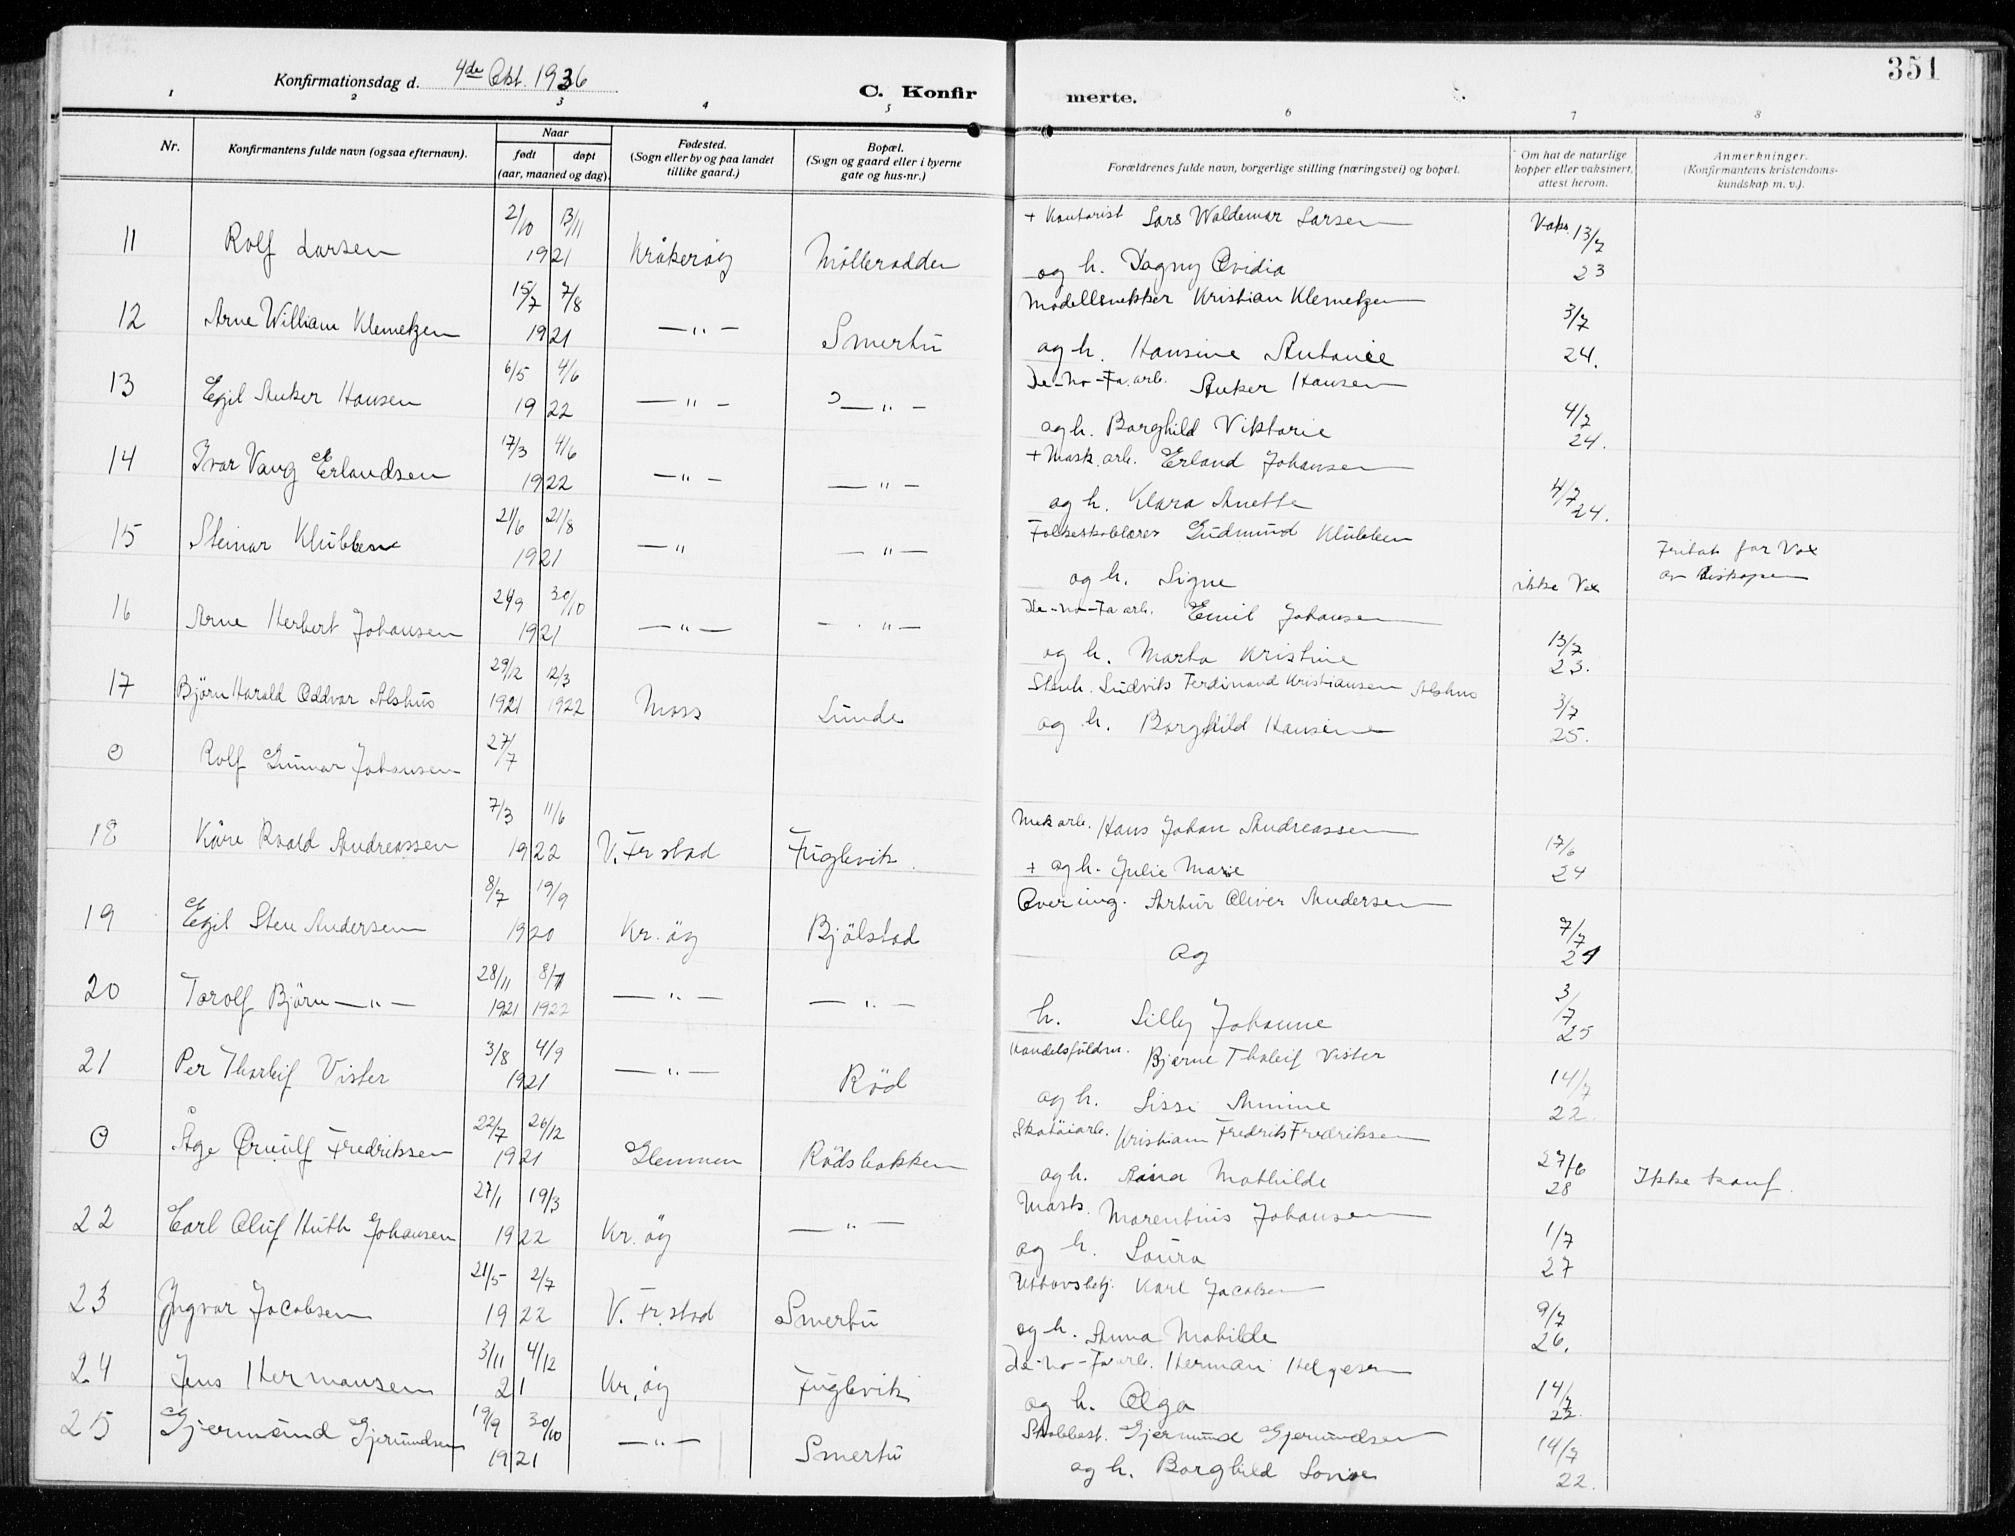 351
Konfirmationsdag d. 4de Okt. 1936
C. Konfirmerte.
1 2 3 4 5 6 7 8
Nr. Konfirmantens fulde navn (ogsaa efternavn). Naar født døpt (aar, maaned og dag). Fødested. (Sogn eller by og paa landet tillike gaard.) Bopæl. (Sogn og gaard eller i byerne gate og hus-nr.) Forældrenes fulde navn, borgerlige stilling (næringsvei) og bopæl. Om hat de naturlige kopper eller vaksinert, attest herom. Anmerkninger. (Konfirmantens kristendomskundskap m. v.).
11 Rolf Larsen 21/10 13/11 1921 Kråkerøy Møllerodden + Kontorist Lars Waldemar Larsen Vaks. 13/7
og h. Dagny Ovidia 23
12 Arne William Klemetzen 15/7 7/8 1921 —"— Smertu Modellsnekker Kristian Klemetzen 3/7
og h. Hansine Antonie 24.
13 Egil Anker Hansen 6/5 4/6 1922 —"— —"— De-No-Fa. arb. Anker Hansen 4/7
og h. Borghild Viktorie 24.
14 Ivar Vang Erlandsen 17/3 4/6 1922 —"— —"— + Mask. arb. Erland Johansen 4/7
og h. Klara Anette 24.
15 Steinar Klubben 21/6 21/8 1921 —" —"— Folkeskolelærer Gudmund Klubben
og h. Signe ikke Vax Fritak for Vax av biskopen
16 Arne Herbert Johansen 24/9 30/10 1921 —"— —"— De-No-Fa arb. Emil Johansen 13/7
og h. Marta Kristine 23.
17 Bjørn Harald Oddvar Alshus 29/12 1921 12/3 1922 Moss Lunde Stenh. Ludvik Ferdinand Kristiansen Alshus 3/7
og h. Borghild Hansine 25.
O Rolf Gunnar Johansen 27/7
18 Kåre Roald Andreassen 7/3 11/6 1922 V. Fr.stad Fuglevik Mek arb. Hans Johan Andreassen 17/6
+ og h. Julie Marie 24
19 Egil Sten Andersen 8/7 19/9 1920 Kr.øy Bjølstad Overing. Artur Oliver Andersen 7/7
og 21
20 Torolf Bjørn —"— 28/11 1921 8/7 1922 —"— —"— 3/7
h. Lilly Johanne 25
21 Per Thorleif Vister 3/8 4/9 1921 —"— Rød Handelsfuldm. Bjarne Tholeif Vister 14/7
og h. Lissi Ammine 22
O Åge Ørnulf Fredriksen 22/7 26/12 1921 Glemmen Rødsbakken Skotøiarb. Kristian Fredrik Fredriksen 27/6
og h. Anna Mathilde 28 Ikke konf.
22 Carl Oluf Huth Johansen 27/1 19/3 1922 Kr.øy —"— Mask. Marentius Johansen 1/7
og h. Laura 27
23 Yngvar Jacobsen 21/5 2/7 1922 V. Fr.stad Smertu Karl Jacobsen 9/7
og h. Anna Matilde 26.
24 Jens Hermansen 3/11 4/12 21 Kr.øy Fuglevik De-No-Fa arb. Herman Helgesen 14/7
og h. Olga 22.
25 Gjermund Gjerundsen 19/9 30/10 1921 —"— Smertu Gjermund Gjerundsen 14/7
og h. Borghild Lovise 22.